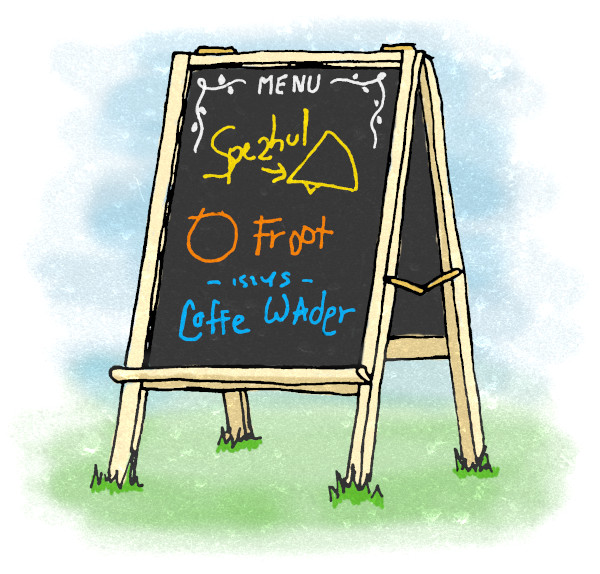 MENU
Spezhul
Froot
Coffe WAder